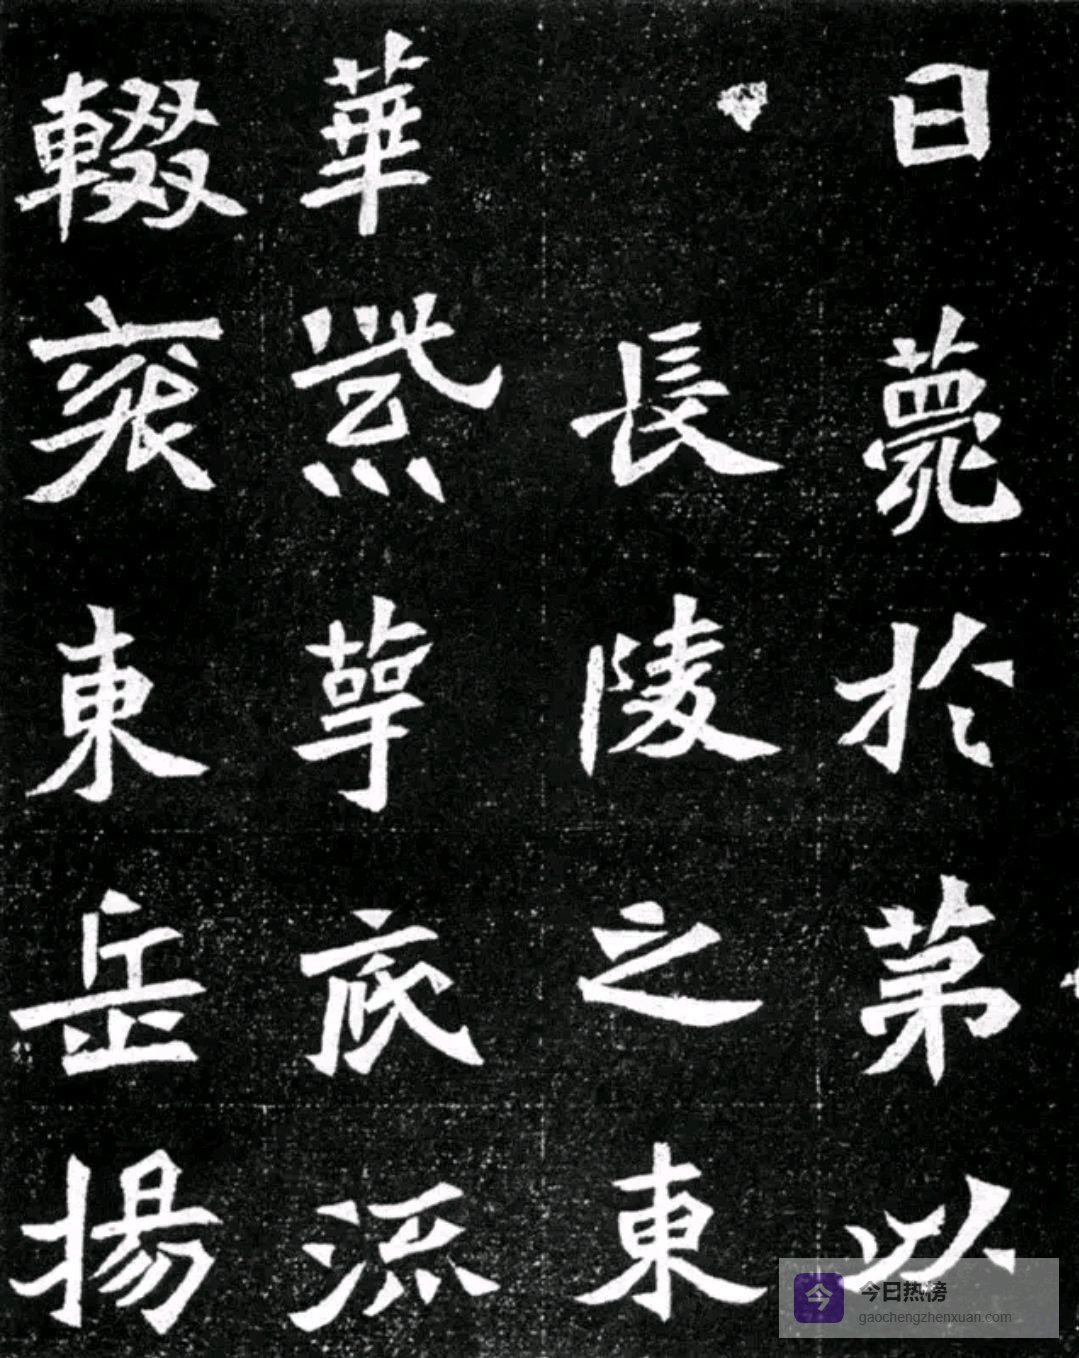 日薨於第以
長陵之東
華紫蕚流
輟衮東岳揚
今日热榜
gaochengzhenxuan.com